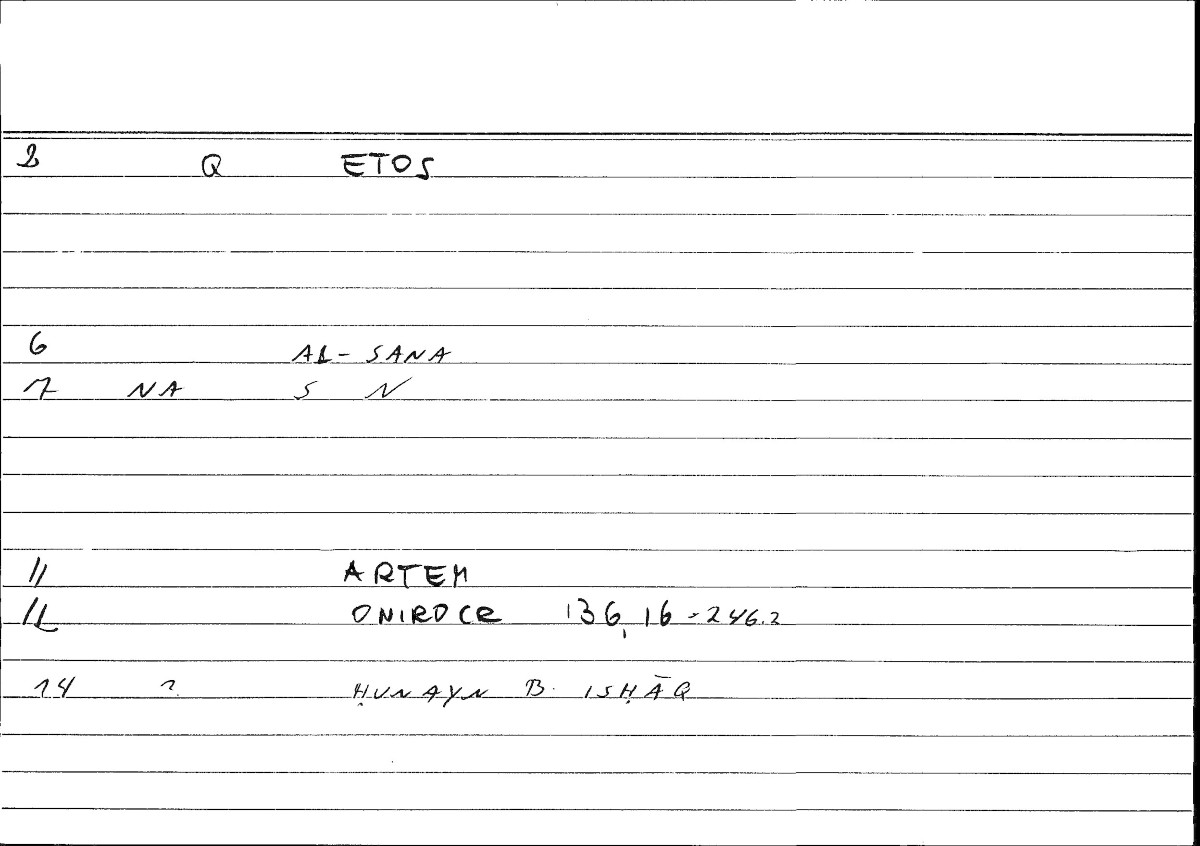 2 Q ETOS
6 AL-SANA
7 NA S N
11 ARTEM
12 ONIROCR 136,16-246.2
14 ? ḤUNAYN B. ISḤĀQ